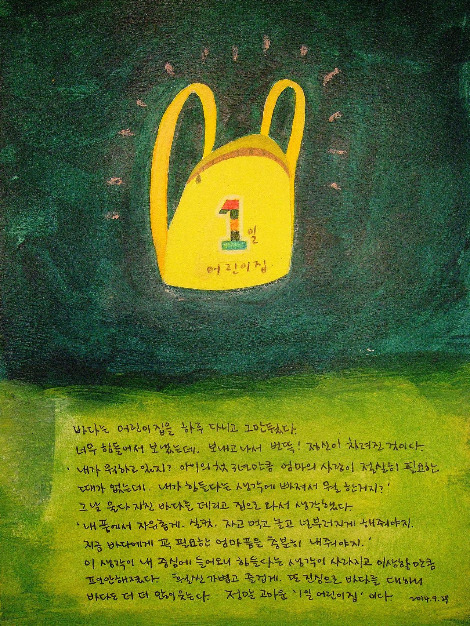 1일
어린이집
바다는 어린이집을 하루 다니고 그만뒀다.
너무 힘들어서 보냈는데. 보내고나서 번뜩! 정신이 차려진 것이다.
'내가 뭐하고있지? 아이의 첫 3년만큼 엄마의 사랑이 절실히 필요한
때가 없는데. 내가 힘들다는 생각에 빠져서 뭘 한거지?'
그날 울다 지친 바다를 데려고 집으로 와서 생각했다.
'내 품에서 자유롭게. 실컷. 자고 먹고 놀고 널부러지게 해줘야지.
지금 바다에게 꼭 필요한 엄마품을 충분히 내줘야지.'
이 생각이 내 중심에 들어오니 힘들다는 생각이 사라지고 이상할만큼
편안해졌다. 훨씬 가볍고 즐겁게. 또 진심으로 바다를 대하니
바다도 더 더 많이웃는다. 정말 고마운 '1일 어린이집' 이다. 2014.9.28